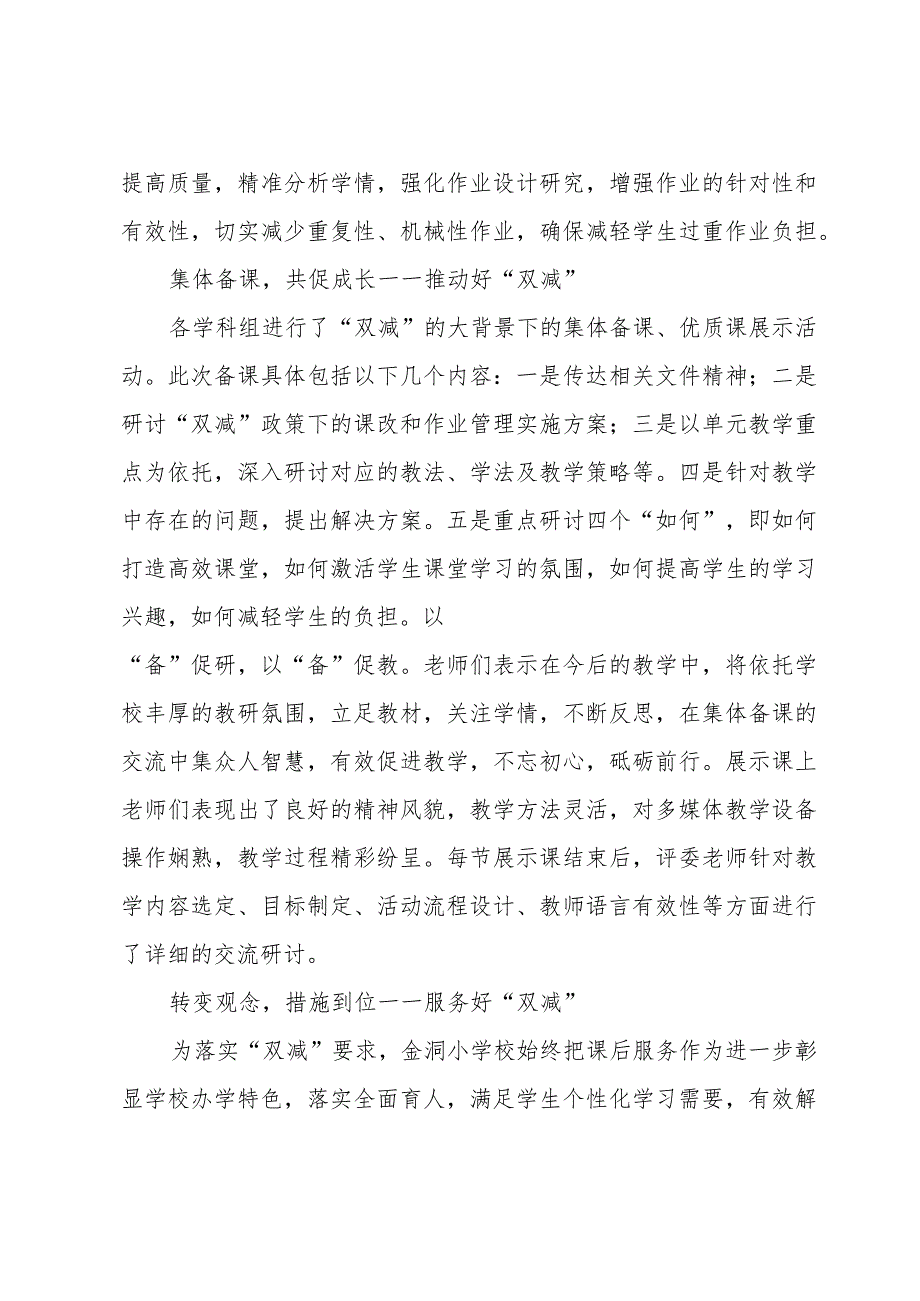 提高质量，精准分析学情，强化作业设计研究，增强作业的针对性和
有效性，切实减少重复性、机械性作业，确保减轻学生过重作业负担。
集体备课，共促成长一一推动好“双减”
各学科组进行了“双减”的大背景下的集体备课、优质课展示活
动。此次备课具体包括以下几个内容：一是传达相关文件精神；二是
研讨“双减”政策下的课改和作业管理实施方案；三是以单元教学重
点为依托，深入研讨对应的教法、学法及教学策略等。四是针对教学
中存在的问题，提出解决方案。五是重点研讨四个“如何”，即如何
打造高效课堂，如何激活学生课堂学习的氛围，如何提高学生的学习
兴趣，如何减轻学生的负担。以
“备”促研，以“备”促教。老师们表示在今后的教学中，将依托学
校丰厚的教研氛围，立足教材，关注学情，不断反思，在集体备课的
交流中集众人智慧，有效促进教学，不忘初心，砥砺前行。展示课上
老师们表现出了良好的精神风貌，教学方法灵活，对多媒体教学设备
操作娴熟，教学过程精彩纷呈。每节展示课结束后，评委老师针对教
学内容选定、目标制定、活动流程设计、教师语言有效性等方面进行
了详细的交流研讨。
转变观念，措施到位一一服务好“双减”
为落实“双减”要求，金洞小学校始终把课后服务作为进一步彰
显学校办学特色，落实全面育人，满足学生个性化学习需要，有效解